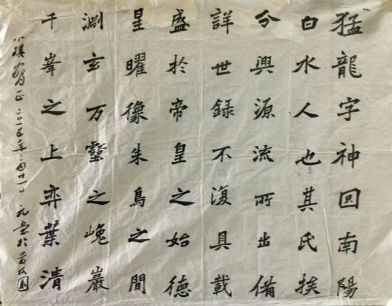 猛龍字神囘南陽
白水人也其氏族
分興源流所出備
詳世録不復具載
盛於帝皇之始德
星曜像朱鳥之間
淵玄万壑之峗巖
千峯之上弈葉清